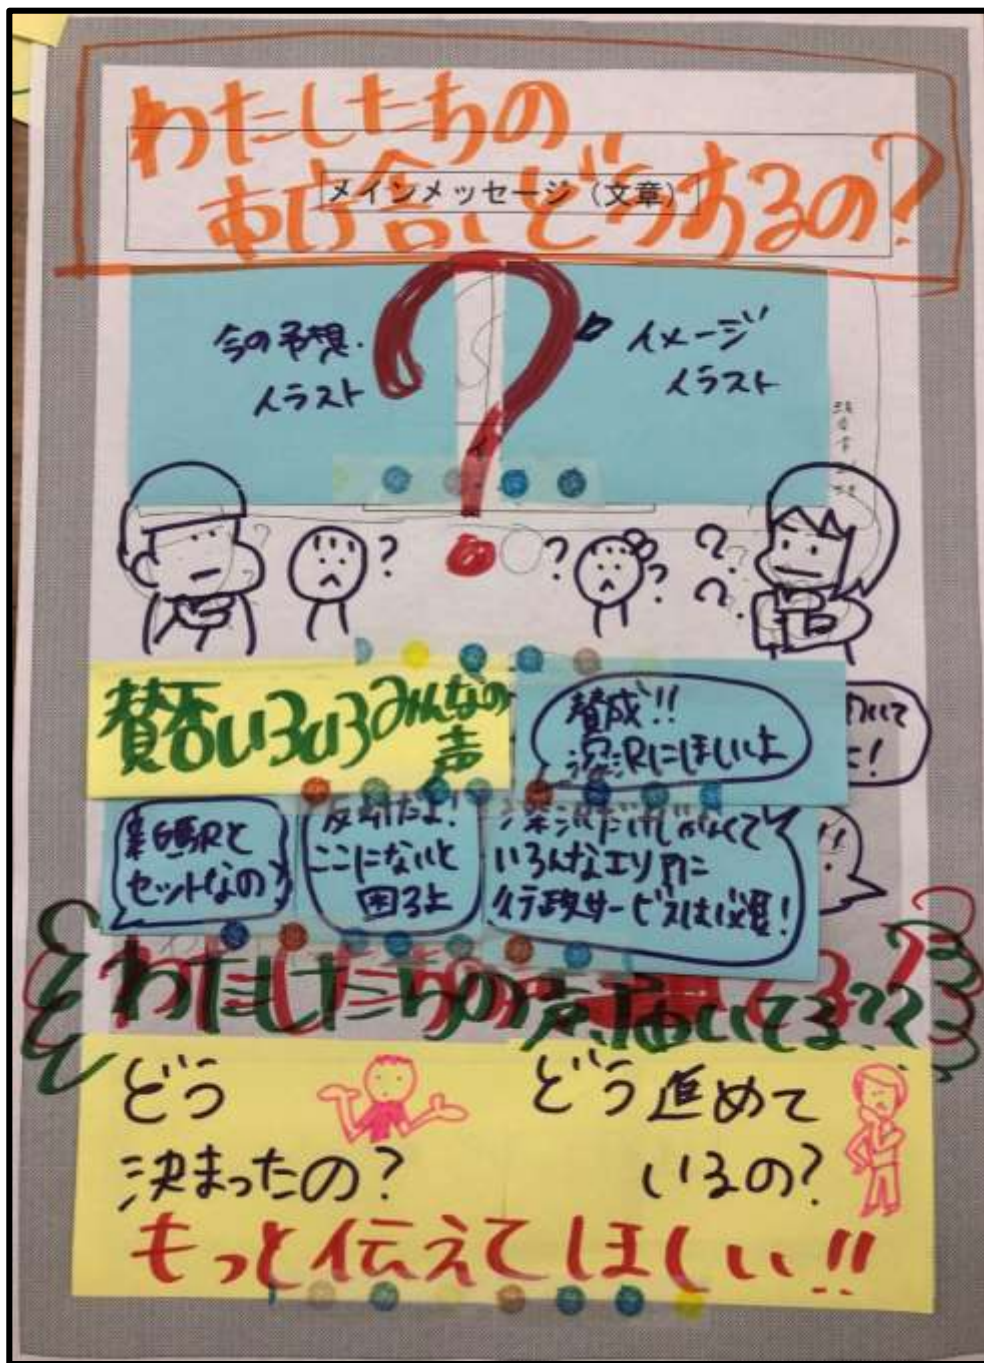 わたしたちの
市庁舎どうするの?
メインメッセージ（文章）
今の予想.
イラスト
イメージ
イラスト
?
?
?
?
?
?
賛否いろいろみんなの
声
賛成!!
深沢にほしいよ
新駅と
セットなの?
反対だよ!
ここにないと
困るよ
深沢だけじゃなくて
いろんなエリアに
行政サービスは必要!
わたしたちの声、届いてる??
どう
決まったの?
どう進めて
いるの?
もっと伝えてほしい!!